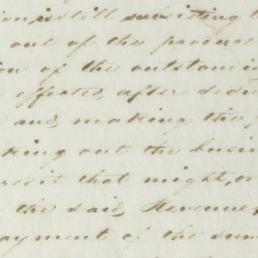 still subsisting
out of the provinc
ion of the outstandi
effected, after dedu
and making the
king out the busin
redit that might, or
the said Revenue,
ayment of the sum